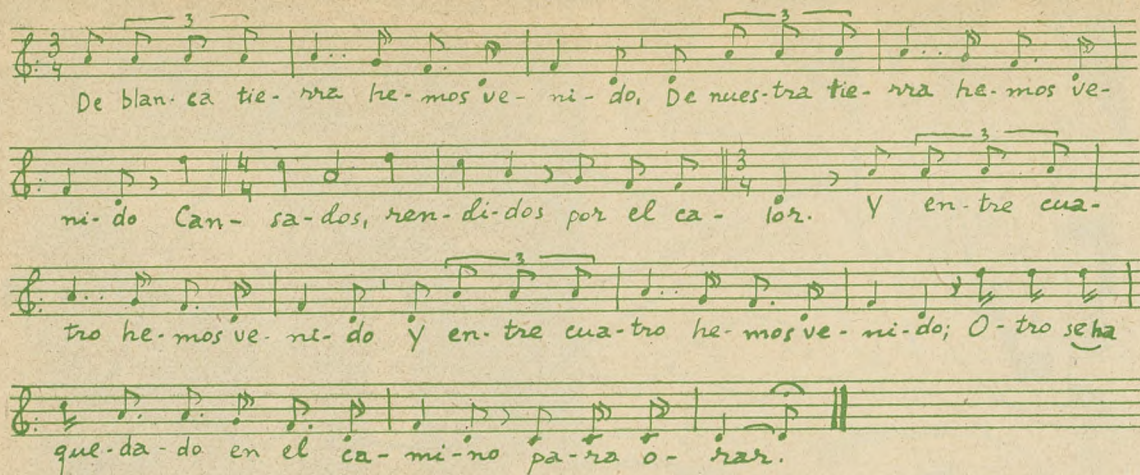 3
3
3
4
De blan-ca tie-rra he-mos ve-ni-do, De nues-tra tie-rra he-mos ve-
3
4
4
3
4
ni-do Can-sa-dos, ren-di-dos por el ca-lor. Y en-tre cua-
3
tro he-mos ve-ni-do Y en-tre cua-tro he-mos ve-ni-do; O-tro se ha
que-da-do en el ca-mi-no pa-ra o-rar.